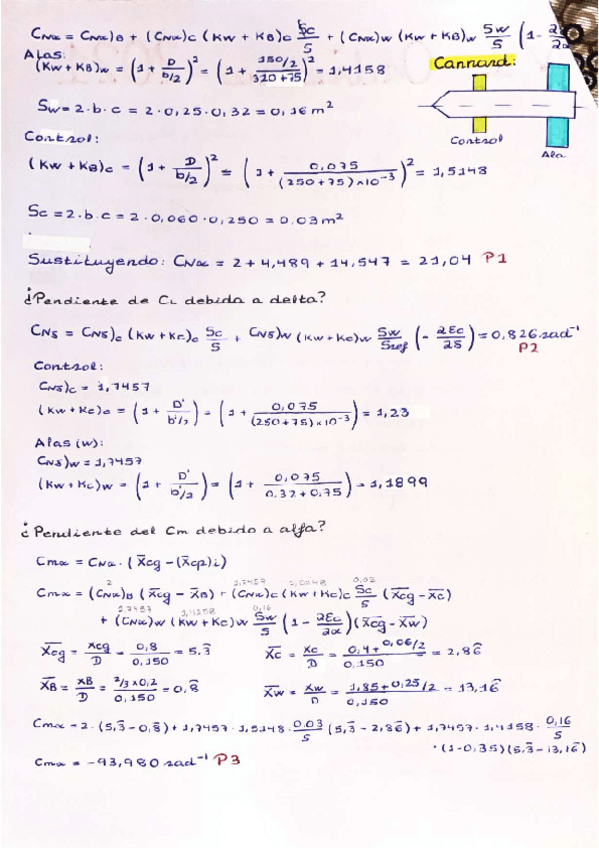 CNα = CNα)B + (CNα)C (KW + KB)C Sc/S + (CNα)W (KW + KB)W Sw/S (1 - 2Ɛ
Alas:
(KW + KB)W = (1 + D/b/2)² = (1 + 150/2 / 320 + 75)² = 1,4158
Cannard:
Sw = 2·b·c = 2·0,25·0,32 = 0,16 m²
Control
Ala
Control:
(KW + KB)C = (1 + D/b/2)² = (1 + 0,075 / (250+75)×10⁻³)² = 1,5148
Sc = 2·b·c = 2·0,060·0,250 = 0.03 m²
Sustituyendo: CNα = 2 + 4,489 + 14,547 = 21,04 P1
¿Pendiente de CL debida a delta?
CNδ = CNδ)c (KW + KC)c Sc/S + CNδ)W (KW + KC)W Sw/Sref (- 2Ɛc/2δ) = 0,826 rad⁻¹
P2
Control:
CNδ)C = 1,7457
(KW + KC)C = (1 + D'/b'/2) = (1 + 0,075 / (250+75)×10⁻³) = 1,23
Alas (w):
CNδ)W = 1,7457
(KW + KC)W = (1 + D'/b'/2) = (1 + 0,075 / 0.32 + 0,75) = 1,1899
¿Pendiente del Cm debido a alfa?
Cmα = CNα · (X̄cg - (X̄cp)i)
2 1,7457 1,5148 0,03
Cmα = (CNα)B (X̄cg - X̄B) + (CNα)C (KW + KC)C Sc/S (X̄cg - X̄c)
1.7457 1,4158 0,16
+ (CNα)W (KW + KC)W Sw/S (1 - 2Ɛc/2α)(X̄cg - X̄W)
X̄cg = Xcg/D = 0,8/0,150 = 5,3̂ X̄c = Xc/D = 0,4 + 0,06/2 / 0.150 = 2,86̂
X̄B = XB/D = 2/3×0,2 / 0,150 = 0,8̂ X̄w = Xw/D = 1,85 + 0,25/2 / 0,150 = 13,16̂
Cmα = 2·(5,3̂ - 0,8̂) + 1,7457·1,5148·0.03/S (5,3̂ - 2,86̂) + 1,7457·1,4158·0,16/S
·(1-0,35)(5,3̂ - 13,16̂)
Cmα = -93,980 rad⁻¹ P3